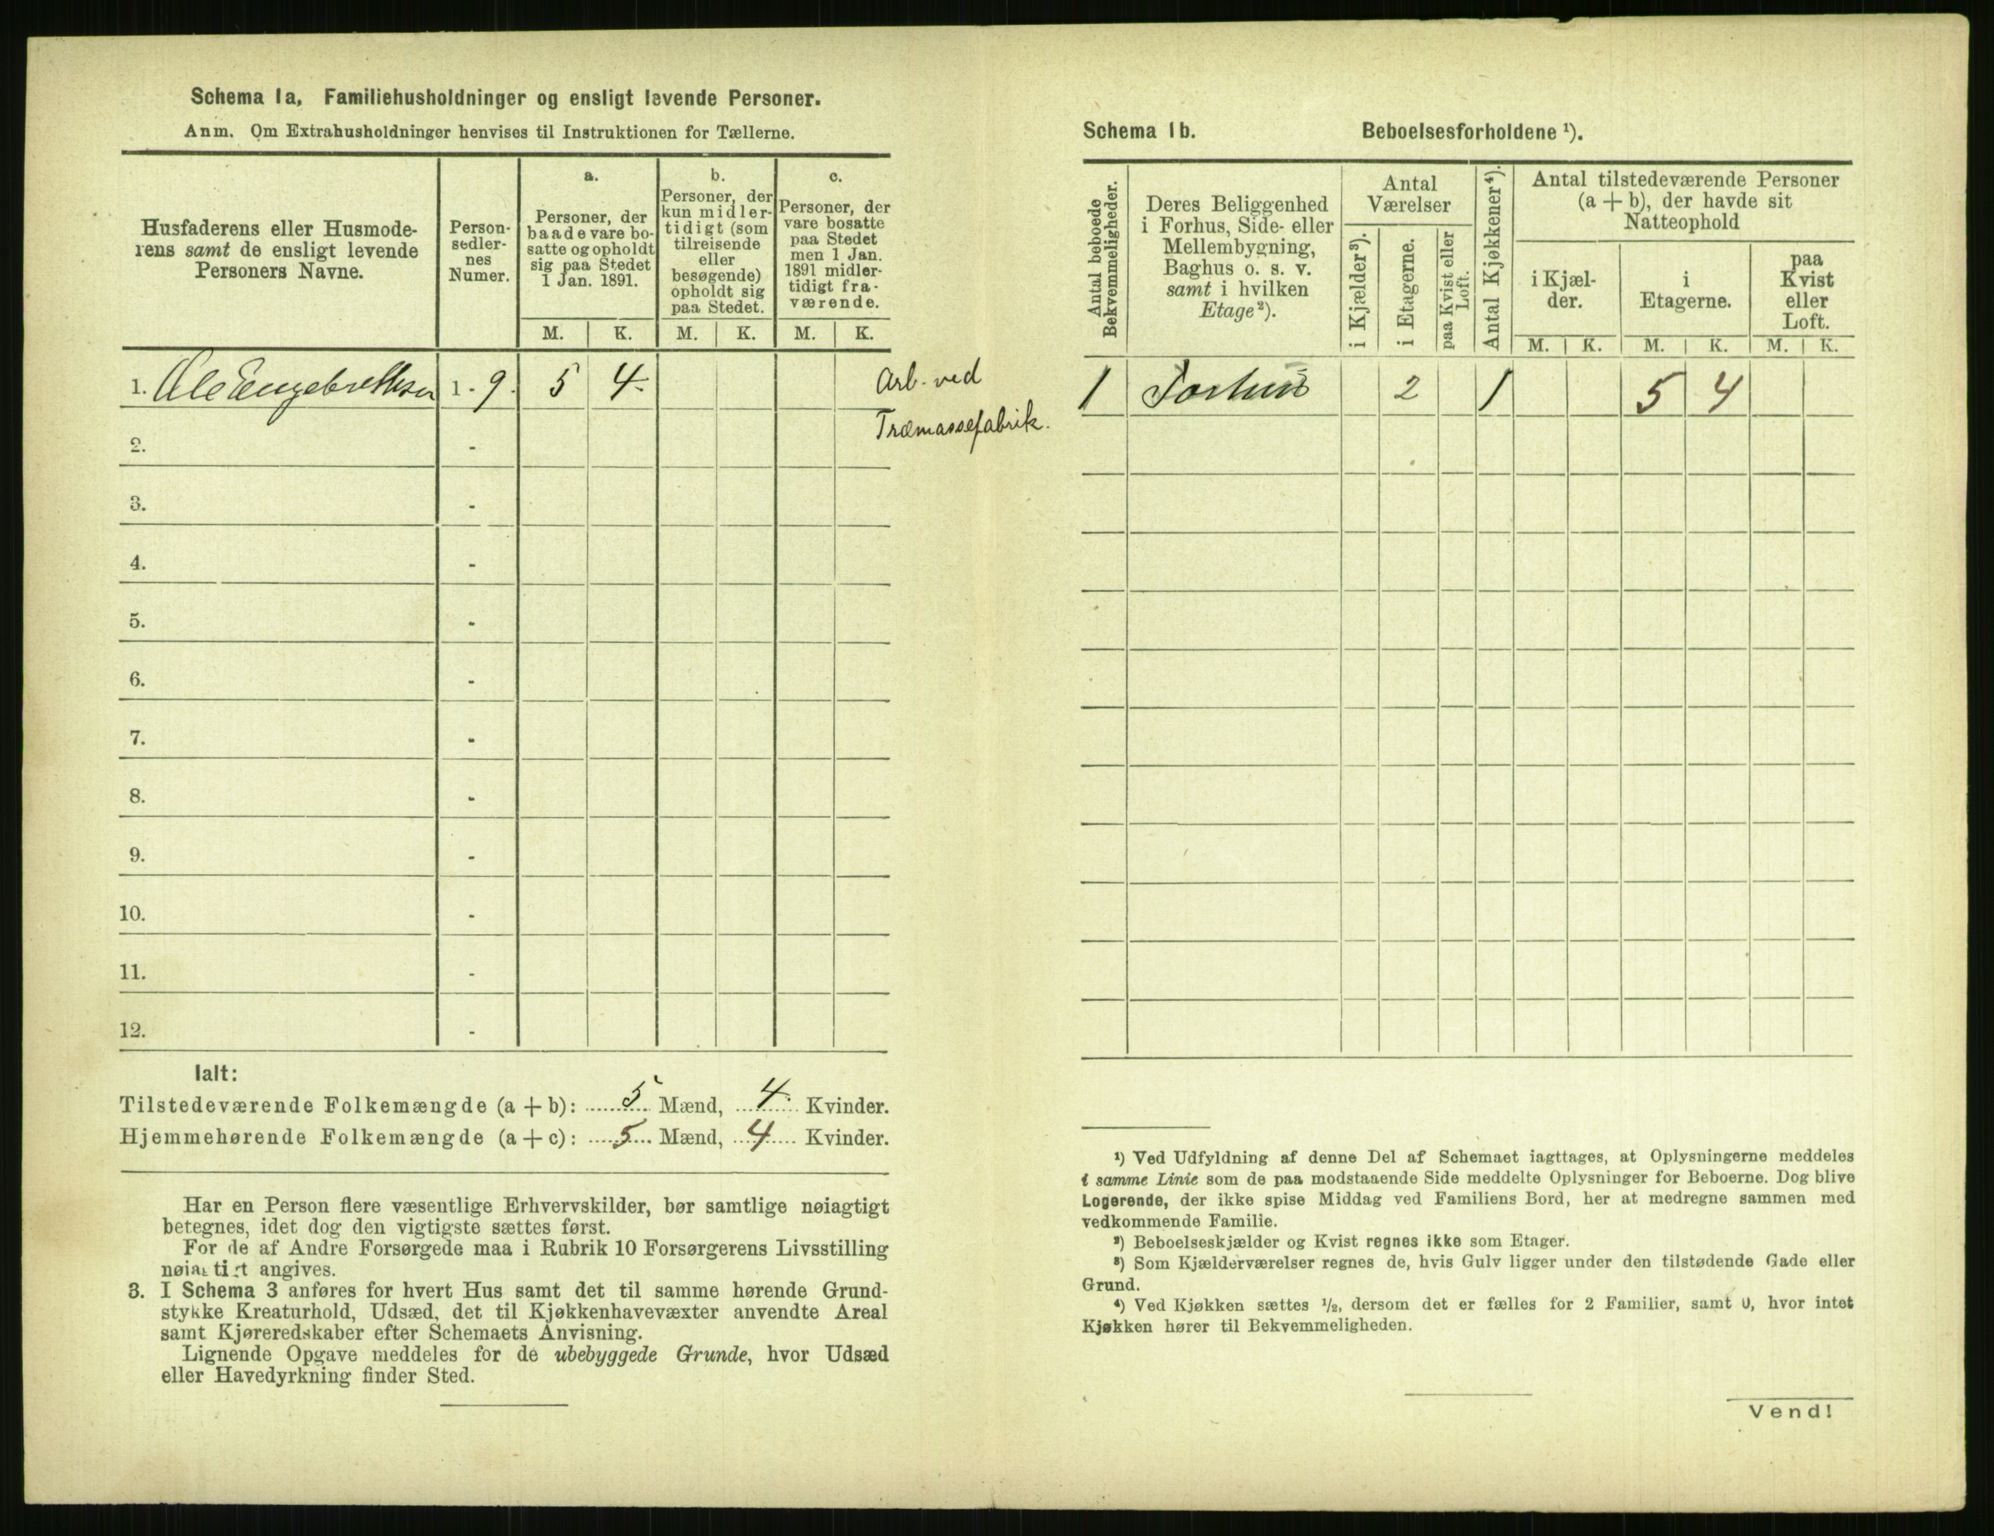 Schema 1a, Familiehusholdninger og ensligt levende Personer.
Anm. Om Extrahusholdninger henvises til Instruktionen for Tællerne.
Husfaderens eller Husmode-
rens samt de ensligt levende
Personers Navne.
Person-
sedler-
nes
Numer.
a.
Personer, der
baade vare bo-
satte og opholdt
sig paa Stedet
1 Jan. 1891.
b.
Personer, der
kun midler-
tidigt (som
tilreisende
eller
besøgende)
opholdt sig
paa Stedet.
c.
Personer, der
vare bosatte
paa Stedet
men 1 Jan.
1891 midler-
tidigt fra-
værende.
M. K. M. K. M. K.
1. Ole Engebrethsen 1 - 9. 5 4.
Arb. ved
Træmassefabrik.
2. -
3. -
4. -
5. -
6. -
7. -
8. -
9. -
10. -
11. -
12. -
Ialt:
Tilstedeværende Folkemængde (a + b): 5 Mænd, 4. Kvinder.
Hjemmehørende Folkemængde (a + c): 5 Mænd, 4 Kvinder.
Har en Person flere væsentlige Erhvervskilder, bør samtlige nøiagtigt
betegnes, idet dog den vigtigste sættes først.
For de af Andre Forsørgede maa i Rubrik 10 Forsørgerens Livsstilling
nøiagtigt angives.
3. I Schema 3 anføres for hvert Hus samt det til samme hørende Grund-
stykke Kreaturhold, Udsæd, det til Kjøkkenhavevæxter anvendte Areal
samt Kjøreredskaber efter Schemaets Anvisning.
Lignende Opgave meddeles for de ubebyggede Grunde, hvor Udsæd
eller Havedyrkning finder Sted.
Schema 1b. Beboelsesforholdene ¹).
Antal beboede
Bekvemmeligheder.
Deres Beliggenhed
i Forhus, Side- eller
Mellembygning,
Baghus o. s. v.
samt i hvilken
Etage²).
Antal
Værelser
i Kjælder³).
i Etagerne.
paa Kvist eller
Loft.
Antal Kjøkkener⁴).
Antal tilstedeværende Personer
(a + b), der havde sit
Natteophold
i Kjæl-
der.
i
Etagerne.
paa
Kvist
eller
Loft.
M. K. M. K. M. K.
1 Forhus 2 1 5 4
¹) Ved Udfyldning af denne Del af Schemaet iagttages, at Oplysningerne meddeles
i samme Linie som de paa modstaaende Side meddelte Oplysninger for Beboerne. Dog blive
Logerende, der ikke spise Middag ved Familiens Bord, her at medregne sammen med
vedkommende Familie.
²) Beboelseskjælder og Kvist regnes ikke som Etager.
³) Som Kjælderværelser regnes de, hvis Gulv ligger under den tilstødende Gade eller
Grund.
⁴) Ved Kjøkken sættes ½, dersom det er fælles for 2 Familier, samt 0, hvor intet
Kjøkken hører til Bekvemmeligheden.
Vend!